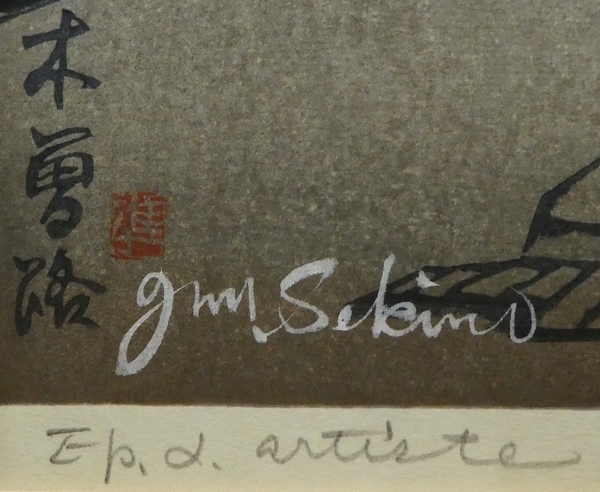 木曽路
準
Jun. Sekino
Ep. d. artiste